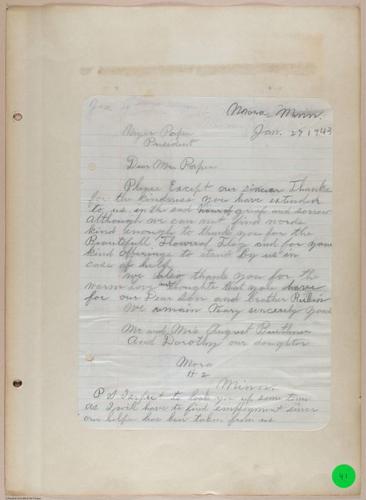 Mora Minn.
Jan. 29 1943
President
Dear Mr.
Please Except our sincear Thanks
for the kindness you have extended
to us in the sad hour of grief and sorrow
Although we can not find words
kind enough to thank you for the
Beautifull Flowerd Flag and for your
kind offerings to stand by us in
case of help
We also thank you for the
warm loving thoughts that you have
for our Dear Son and brother Ruben
We remain Very sincerely yours
Mr and Mrs August
And Dorothy our daughter
Mora
# 2
Minn.
P S I expect to look you up some time
as I will have to find employment since
our helper has been taken from us
41